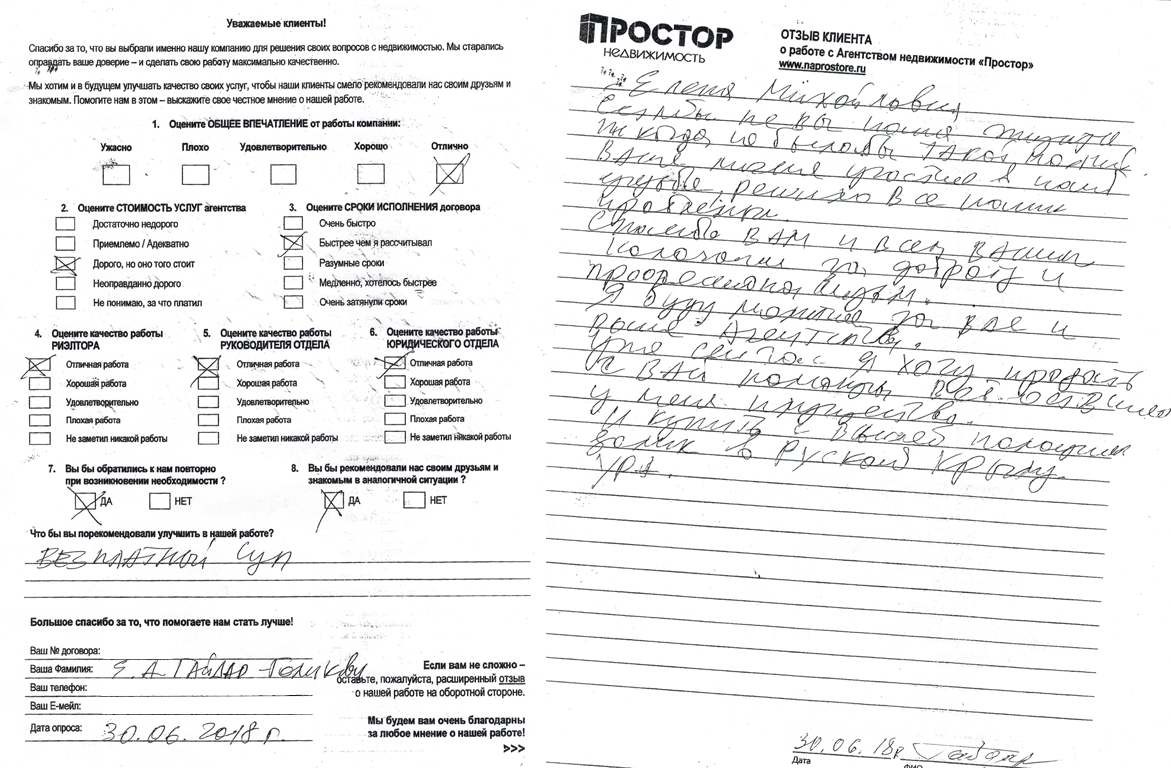 Уважаемые клиенты!
Спасибо за то, что вы выбрали именно нашу компанию для решения своих вопросов с недвижимостью. Мы старались
оправдать ваше доверие – и сделать свою работу максимально качественно.
Мы хотим и в будущем улучшать качество своих услуг, чтобы наши клиенты смело рекомендовали нас своим друзьям и
знакомым. Помогите нам в этом – выскажите свое честное мнение о нашей работе.
1. Оцените ОБЩЕЕ ВПЕЧАТЛЕНИЕ от работы компании:
Ужасно Плохо Удовлетворительно Хорошо Отлично
2. Оцените СТОИМОСТЬ УСЛУГ агентства
Достаточно недорого
Приемлемо / Адекватно
Дорого, но оно того стоит
Неоправданно дорого
Не понимаю, за что платил
3. Оцените СРОКИ ИСПОЛНЕНИЯ договора
Очень быстро
Быстрее чем я рассчитывал
Разумные сроки
Медленно, хотелось быстрее
Очень затянули сроки
4. Оцените качество работы
РИЭЛТОРА
Отличная работа
Хорошая работа
Удовлетворительно
Плохая работа
Не заметил никакой работы
5. Оцените качество работы
РУКОВОДИТЕЛЯ ОТДЕЛА
Отличная работа
Хорошая работа
Удовлетворительно
Плохая работа
Не заметил никакой работы
6. Оцените качество работы
ЮРИДИЧЕСКОГО ОТДЕЛА
Отличная работа
Хорошая работа
Удовлетворительно
Плохая работа
Не заметил никакой работы
7. Вы бы обратились к нам повторно
при возникновении необходимости ?
ДА НЕТ
8. Вы бы рекомендовали нас своим друзьям и
знакомым в аналогичной ситуации ?
ДА НЕТ
Что бы вы порекомендовали улучшить в нашей работе?
БЕЗПЛАТНОЙ Суп
Большое спасибо за то, что помогаете нам стать лучше!
Ваш № договора:
Ваша Фамилия: Е. А. ГАЙДАР-Голикову
Ваш телефон:
Ваш Е-мейл:
Дата опроса: 30.06.2018 г.
Если вам не сложно –
оставьте, пожалуйста, расширенный отзыв
о нашей работе на оборотной стороне.
Мы будем вам очень благодарны
за любое мнение о нашей работе!
>>>
ПРОСТОР
недвижимость
ОТЗЫВ КЛИЕНТА
о работе с Агентством недвижимости «Простор»
www.naprostore.ru
Елена Михайловна
Если бы не вы наша
никогда не было бы такой
Ваше участие в нашей
судьбе, решило все наши
проблемы.
Спасибо ВАМ и всем Вашим
за доброту и
профессионализм.
Я буду молится за вас и
ваше Агентство.
Уже сейчас я хочу продать
с ВАШ помощи все
у меня имущество.
И купить с вашей помощью
домик в Руской Крыму
УРА.
30.06.18г.
Дата
ФИО